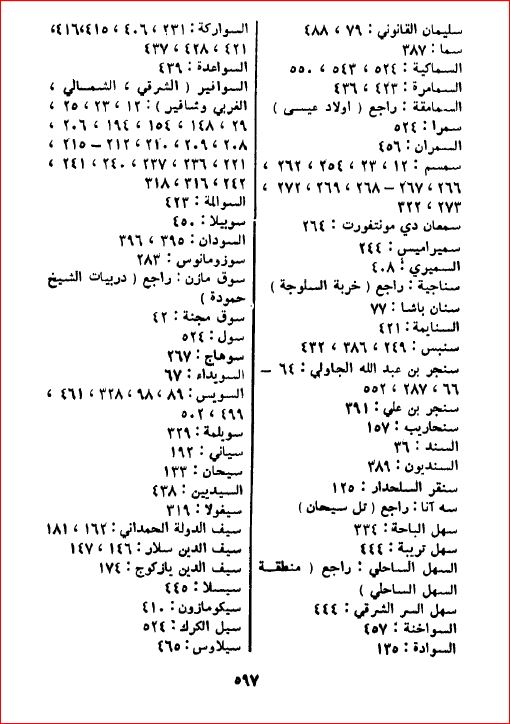 سليمان القانوني : ٧٩ ، ٤٨٨
سما : ٣٨٧
السماكية : ٥٢٤ ، ٥٤٣ ، ٥٥٠
السمامرة : ٤٢٣ ، ٤٣٦
السمامقة : راجع ( اولاد عيسى )
سمرا : ٥٢٤
السمران : ٤٥٦
سمسم : ١٢ ، ٢٣ ، ٢٥٤ ، ٢٦٢ ،
٢٦٦ ، ٢٦٧ – ٢٦٨ ، ٢٦٩ ، ٢٧٢ ،
٢٧٣ ، ٣٢٢
سمعان دي مونتفورت : ٢٦٤
سميراميس : ٢٤٤
السميري : ٤٠٨
سناجية : راجع ( خربة السلوجة )
سنان باشا : ٧٧
السنايمة : ٤٢١
سنبس : ٢٤٩ ، ٣٨٦ ، ٤٣٢
سنجر بن عبد الله الجاولي : ٦٤ –
٦٦ ، ٢٨٧ ، ٥٥٢
سنجر بن علي : ٣٩١
سنحاريب : ١٥٧
السند : ٣٦
السنديون : ٣٨٩
سنقر السلحدار : ١٢٥
سه آنا : راجع ( تل سيحان )
سهل الباحة : ٣٣٤
سهل تريبة : ٤٤٤
السهل الساحلي : راجع ( منطقة
السهل الساحلي )
سهل السر الشرقي : ٤٤٤
السواخنة : ٤٥٧
السوادة : ١٣٥
السواركة : ٢٣١ ، ٤٠٦ ، ٤١٥ ، ٤١٦ ،
٤٢١ ، ٤٢٨ ، ٤٣٧
السواعدة : ٤٣٩
السوافير ( الشرقي ، الشمالي ،
الغربي وشافير ) : ١٢ ، ٢٣ ، ٢٥ ،
٢٩ ، ١٤٨ ، ١٥٤ ، ١٩٤ ، ٢٠٦ ،
٢٠٨ ، ٢٠٩ ، ٢١٠ ، ٢١٢ – ٢١٥ ،
٢٢١ ، ٢٣٦ ، ٢٣٧ ، ٢٤٠ ، ٢٤١ ،
٢٤٢ ، ٣١٦ ، ٣١٨
السوالمة : ٤٢٣
سوبيلا : ٤٥٠
السودان : ٣٩٥ ، ٣٩٦
سوزومانوس : ٢٨٣
سوق مازن : راجع ( دربيات الشيخ
حمودة )
سوق مجنة : ٤٢
سول : ٥٢٤
سوهاج : ٢٦٧
السويداء : ٦٧
السويس : ٨٩ ، ٩٨ ، ٣٢٨ ، ٤٦١ ،
٤٩٩ ، ٥٠٢
سويلمة : ٣٢٩
سياني : ١٩٢
سيحان : ١٣٣
السيديين : ٤٣٨
سيفولا : ٣١٩
سيف الدولة الحمداني : ١٦٢ ، ١٨١
سيف الدين سلار : ١٤٦ ، ١٤٧
سيف الدين يازكوج : ١٧٤
سيسلا : ٤٤٥
سيكومازون : ٤١٠
سيل الكرك : ٥٢٤
سيلاوس : ٤٦٥
٥٩٧